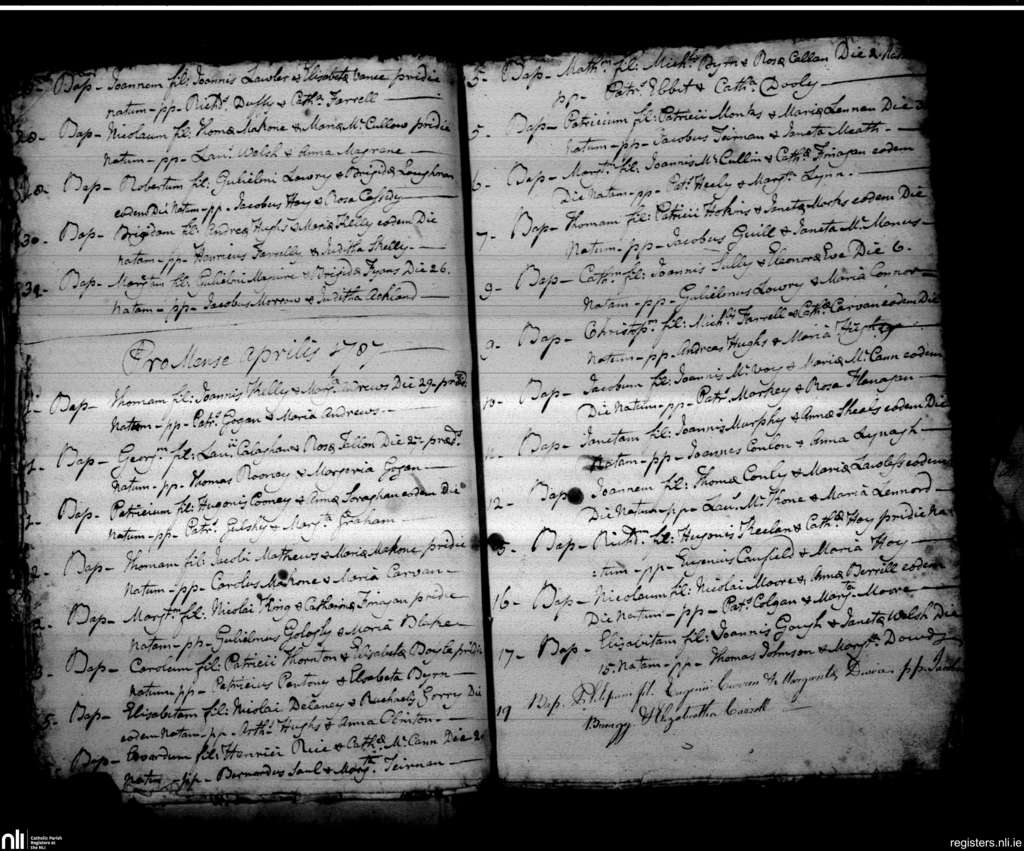 Bap- Joannem fil: Joannis Lawler & Elisabetæ Vance pridie
natum - pp - Richd. Duffy & Cathn. Farrell
28- Bap- Nicolaum fil: Thomæ Mahone & Mariæ McCullow pridie
Natum - pp - Lau: Welsh & Anna Magrane
28- Bap- Robertum fil: Gulielmi Lowry & Brigidæ Loughran
eodem Die Natum - pp. Jacobus Hoy & Rosa Cassedy
30- Bap- Brigidam fil: Andreæ Hughs & Mariæ Kelly eodem Die
natam - pp - Henricus Farrelly & Juditha Shelly
Bap- fil: Gulielmi Maguire & Brigidæ Lyons Die 26.
Natam - pp - Jacobus Morrow & Juditha Ackland
Pro Mense Aprilis 1787
1- Bap- Thomam fil: Joannis Kelly & Andrews Die 29-
Natum - pp - Patr. Gogan & Maria Andrews
1- Bap- Georgm fil: Lau: Calaghan & Rosæ Fellon Die
Natum - pp - Thomas Roonay & Gogan
1- Bap- Patricium fil: Hugonis Comey & Annæ Soraghan eodem Die
Natum - pp - Patr. & Margta. Graham
2- Bap- Thomam fil: Jacobi Mathews & Mariæ Mahone pridie
Natum - pp - Carolus Mahone & Maria Carvan
2- Bap- Margtm fil: Nicolai King & Catharinæ Finagan pridie
Natam - pp - Gulielmus Gologly & Maria Blake
3- Bap- Carolum fil: Patricii Thornton & Elisabetæ Boyle pridie
natum - pp - Patricius Pentony & Elisabeta Byrn
5- Bap- Elisabetam fil: Nicolai Delaney & Rachaelis Gorry Die
eodem Natam - pp - Arthr. Hughs & Anna Clinton
Bap- Edvardum fil: Henrici Rice & Cathæ. McCann Die
Natum - pp - Bernardus Saul & Margta. Teirnan
5- Bap- Mathm. fil: Michls. Byrn & Rosæ Callan Die 2
pp- Patr. Ebbit & Cathn. Dooly
5. Bap- Patricium fil: Patricii Monks & Mariæ Lennen Die
Natum - pp - Jacobus Teirnan & Janeta Meath
6- Bap- fil: Joannis McCullin & Cathæ. Finagan eodem
Die Natam - pp - Patr. Heely & Margta. Lynn
7- Bap- Thomam fil: Patricii Hokins & Janetæ Marks eodem Die
Natum - pp - Jacobus Guill & Janeta McManus
9- Bap- Cathm. fil: Joannis Sully & Eleonoræ Eve Die 6.
Natam - pp - Gulielmus Lowry & Maria Connor
9- Bap- Christophm. fil: Michls. Farrell & Cathæ. Carvan eodem Die
Natum - pp - Andreas Hughs & Maria
10- Bap- Jacobum fil: Joannis McVoy & Mariæ McCann eodem
Die Natum - pp - Patr. Markey & Rosa Flanagan
Bap- Janetam fil: Joannis Murphy & Annæ Sheals eodem Die
Natam - pp - Joannes Conlon & Anna Lynagh
12- Bap- Joannem fil: Thomæ Conly & Mariæ Lawless eodem
Die Natum - pp - Lau: McKone & Maria Lennord
Bap- Richd: fil: Hugonis Keelan & Cathæ. Hoy pridie na
:tum - pp - Eugenius Caufield & Maria Hoy
16- Bap- Nicolaum fil: Nicolai Moore & Annæ Berrill eodem
Die Natum - pp - Patr. Colgan & Margta. Moore
17- Bap- Elizabetam fil: Joannis Gough & Janetæ Welsh Die
15. Natam - pp - Thomas Johnson & Margta. Dowdy
19 Bap. fil. Eugenii Curran & Margaritæ pp.
& Elizabetha Carroll
nli
Catholic Parish
Registers at
the NLI
registers.nli.ie